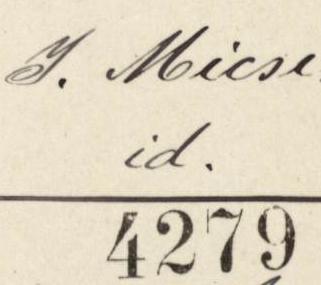 J. Micse
id.
4279